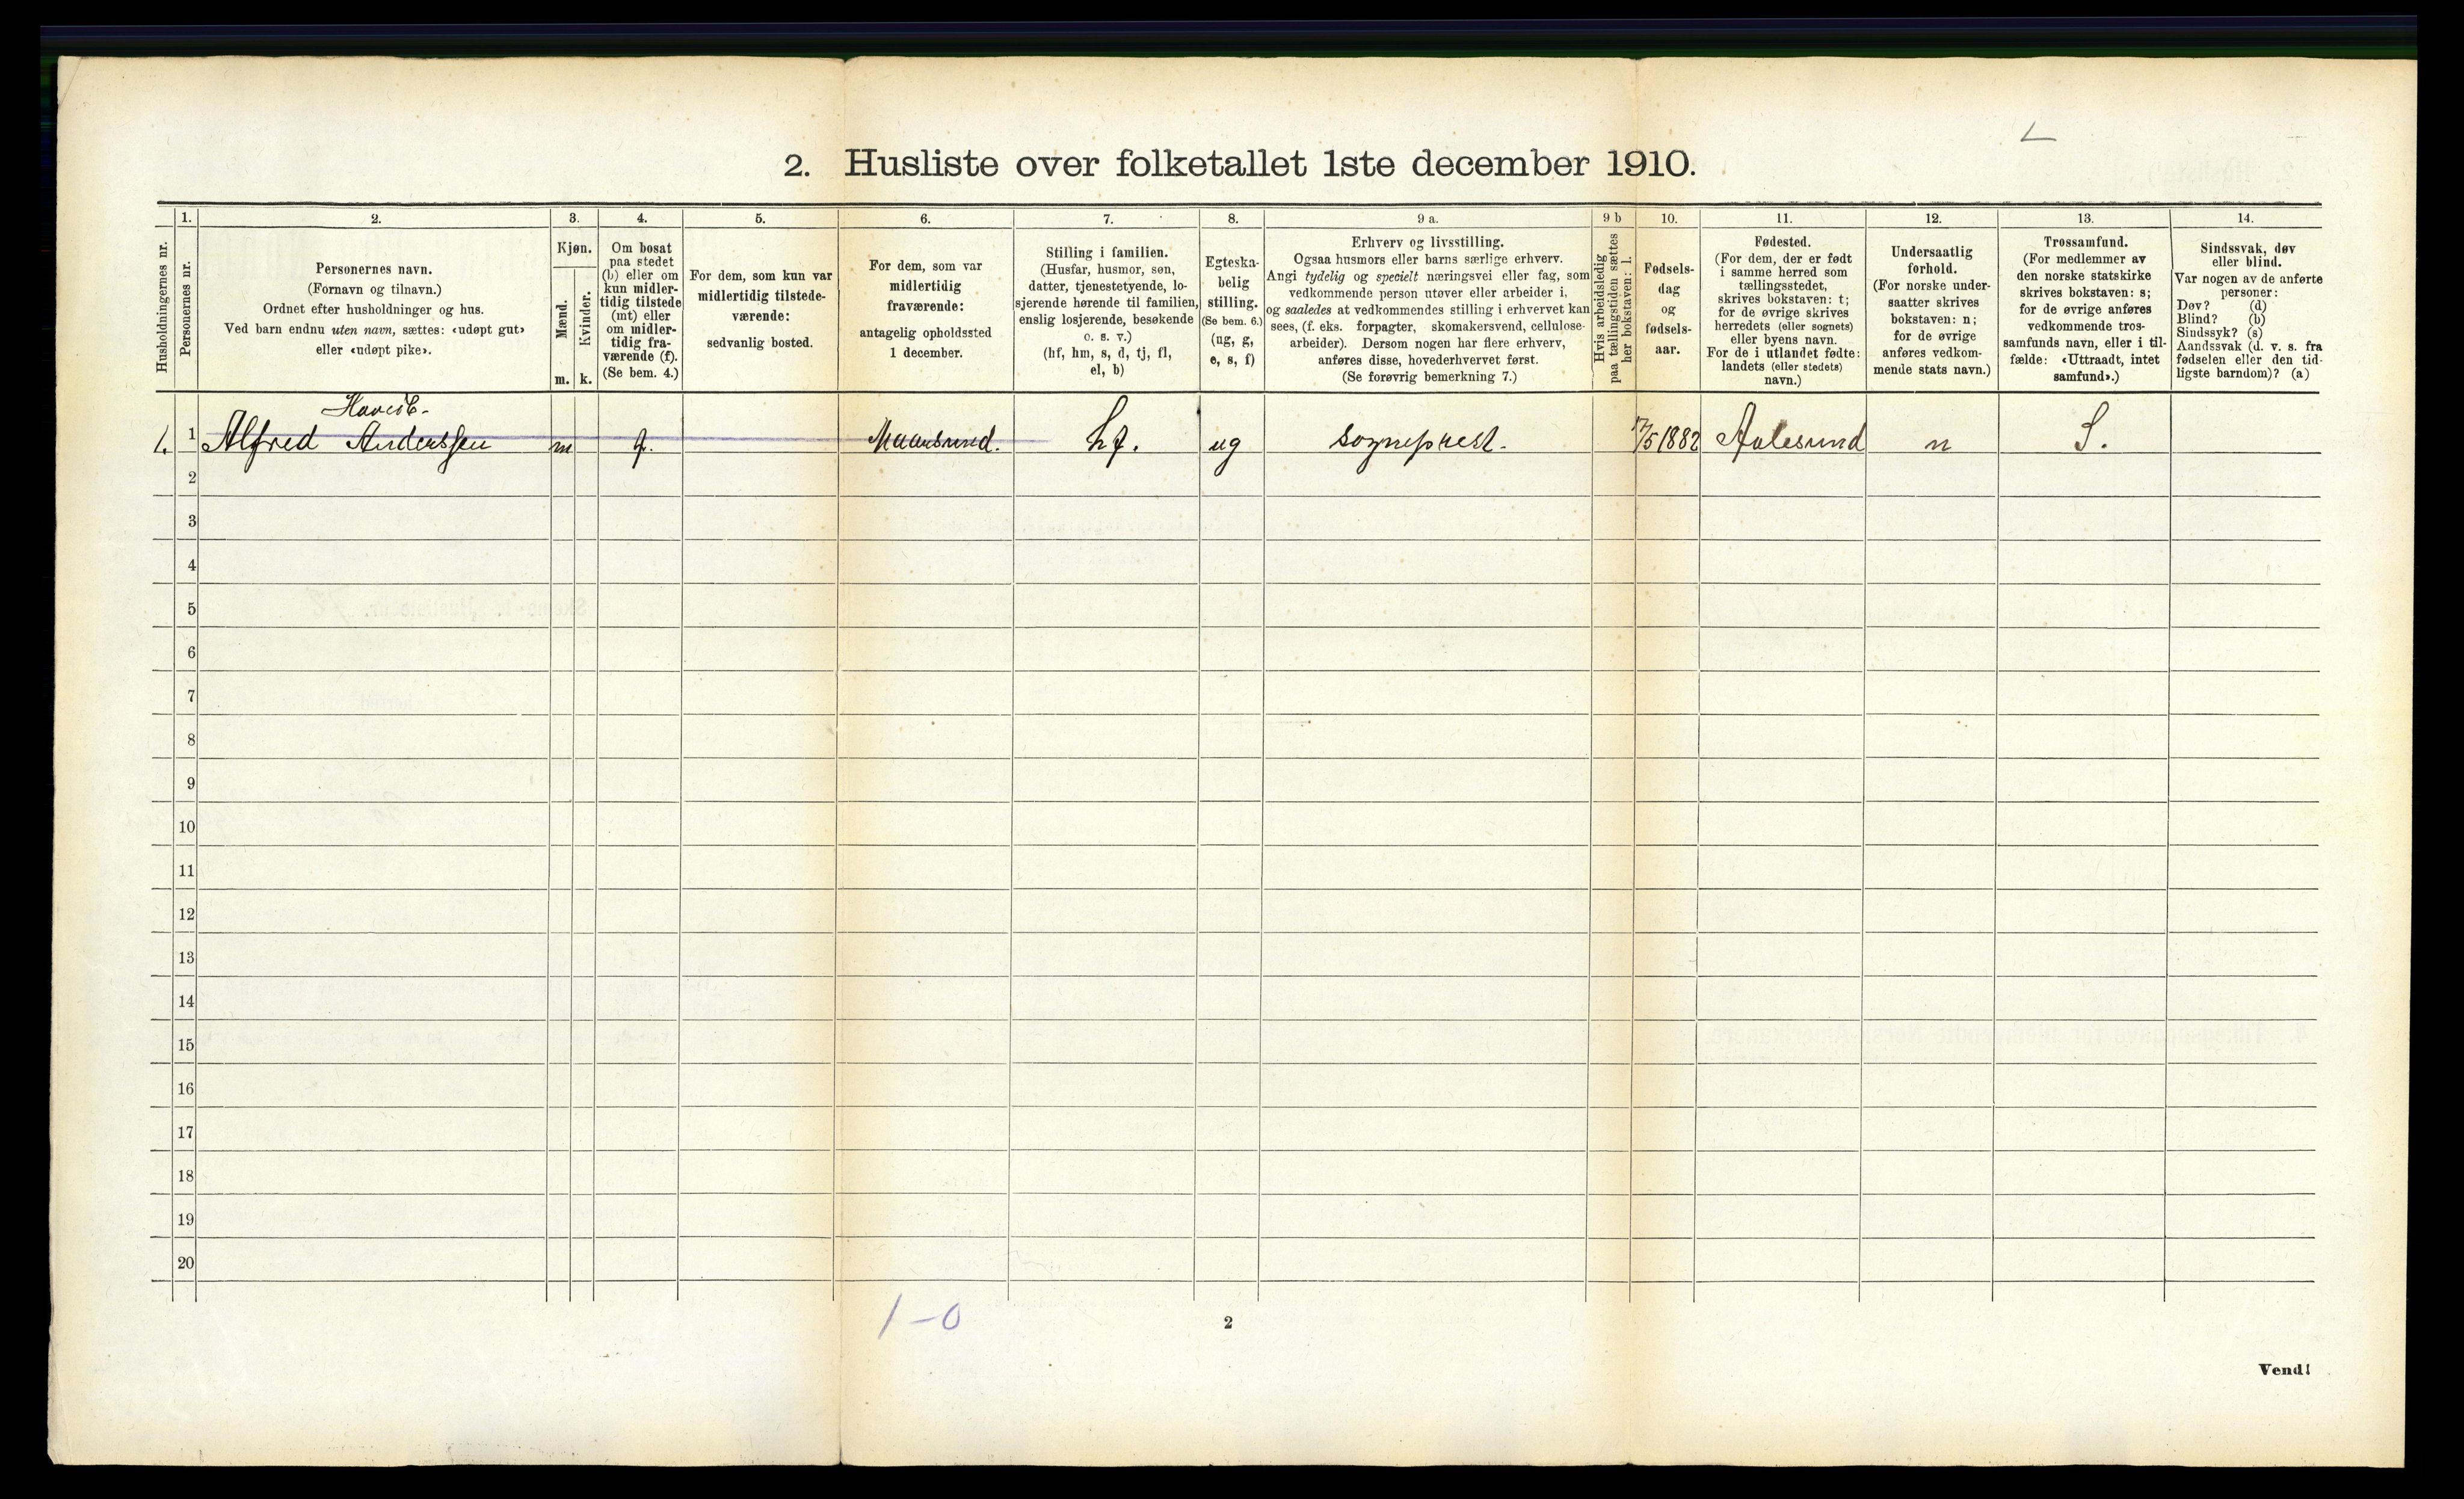 2. Husliste over folketallet 1ste december 1910.
Husholdningernes nr.
1.
Personernes nr.
2.
Personernes navn.
(Fornavn og tilnavn.)
Ordnet efter husholdninger og hus.
Ved barn endnu uten navn, sættes: «udøpt gut»
eller «udøpt pike».
3.
Kjøn.
Mænd.
m.
Kvinder.
k.
4.
Om bosat
paa stedet
(b) eller om
kun midler-
tidig tilstede
(mt) eller
om midler-
tidig fra-
værende (f).
(Se bem. 4.)
5.
For dem, som kun var
midlertidig tilstede-
værende:
sedvanlig bosted.
6.
For dem, som var
midlertidig
fraværende:
antagelig opholdssted
1 december.
7.
Stilling i familien.
(Husfar, husmor, søn,
datter, tjenestetyende, lo-
sjerende hørende til familien,
enslig losjerende, besøkende
o. s. v.)
(hf, hm, s, d, tj, fl,
el, b)
8.
Egteska-
belig
stilling.
(Se bem. 6.)
(ug, g,
e, s, f)
9 a.
Erhverv og livsstilling.
Ogsaa husmors eller barns særlige erhverv.
Angi tydelig og specielt næringsvei eller fag, som
vedkommende person utøver eller arbeider i,
og saaledes at vedkommendes stilling i erhvervet kan
sees, (f. eks. forpagter, skomakersvend, cellulose-
arbeider). Dersom nogen har flere erhverv,
anføres disse, hovederhvervet først.
(Se forøvrig bemerkning 7.)
9 b
Hvis arbeidsledig
paa tællingstiden sættes
her bokstaven: l.
10.
Fødsels-
dag
og
fødsels-
aar.
11.
Fødested.
(For dem, der er født
i samme herred som
tællingsstedet,
skrives bokstaven: t;
for de øvrige skrives
herredets (eller sognets)
eller byens navn.
For de i utlandet fødte:
landets (eller stedets)
navn.)
12.
Undersaatlig
forhold.
(For norske under-
saatter skrives
bokstaven: n;
for de øvrige
anføres vedkom-
mende stats navn.)
13.
Trossamfund.
(For medlemmer av
den norske statskirke
skrives bokstaven: s;
for de øvrige anføres
vedkommende tros-
samfunds navn, eller i til-
fælde: «Uttraadt, intet
samfund».)
14.
Sindssvak, døv
eller blind.
Var nogen av de anførte
personer:
Døv? (d)
Blind? (b)
Sindssyk? (s)
Aandssvak (d. v. s. fra
fødselen eller den tid-
ligste barndom)? (a)
1. 1 Alfred Anderssen m f. hf. ug sogneprest. 17/5 1882 Aalesund n S.
2
3
4
5
6
7
8
9
10
11
12
13
14
15
16
17
18
19
20
1-0
2
Vend!